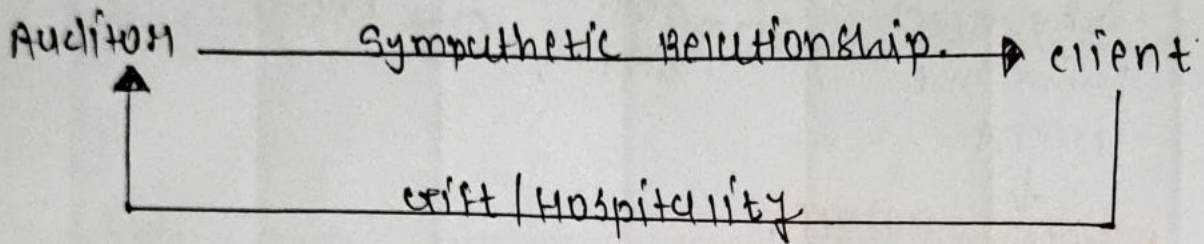 Auditor Sympathetic Relationship. client
Gift / Hospitality